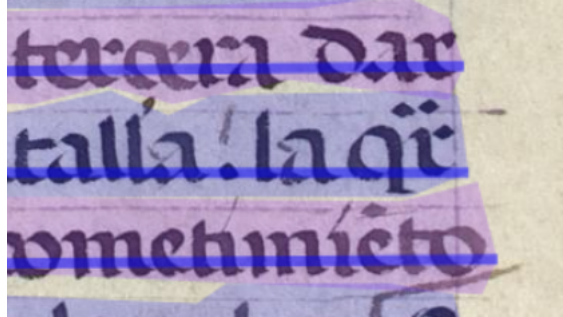 tercera dar
talla. la qr̃
ometimiẽto